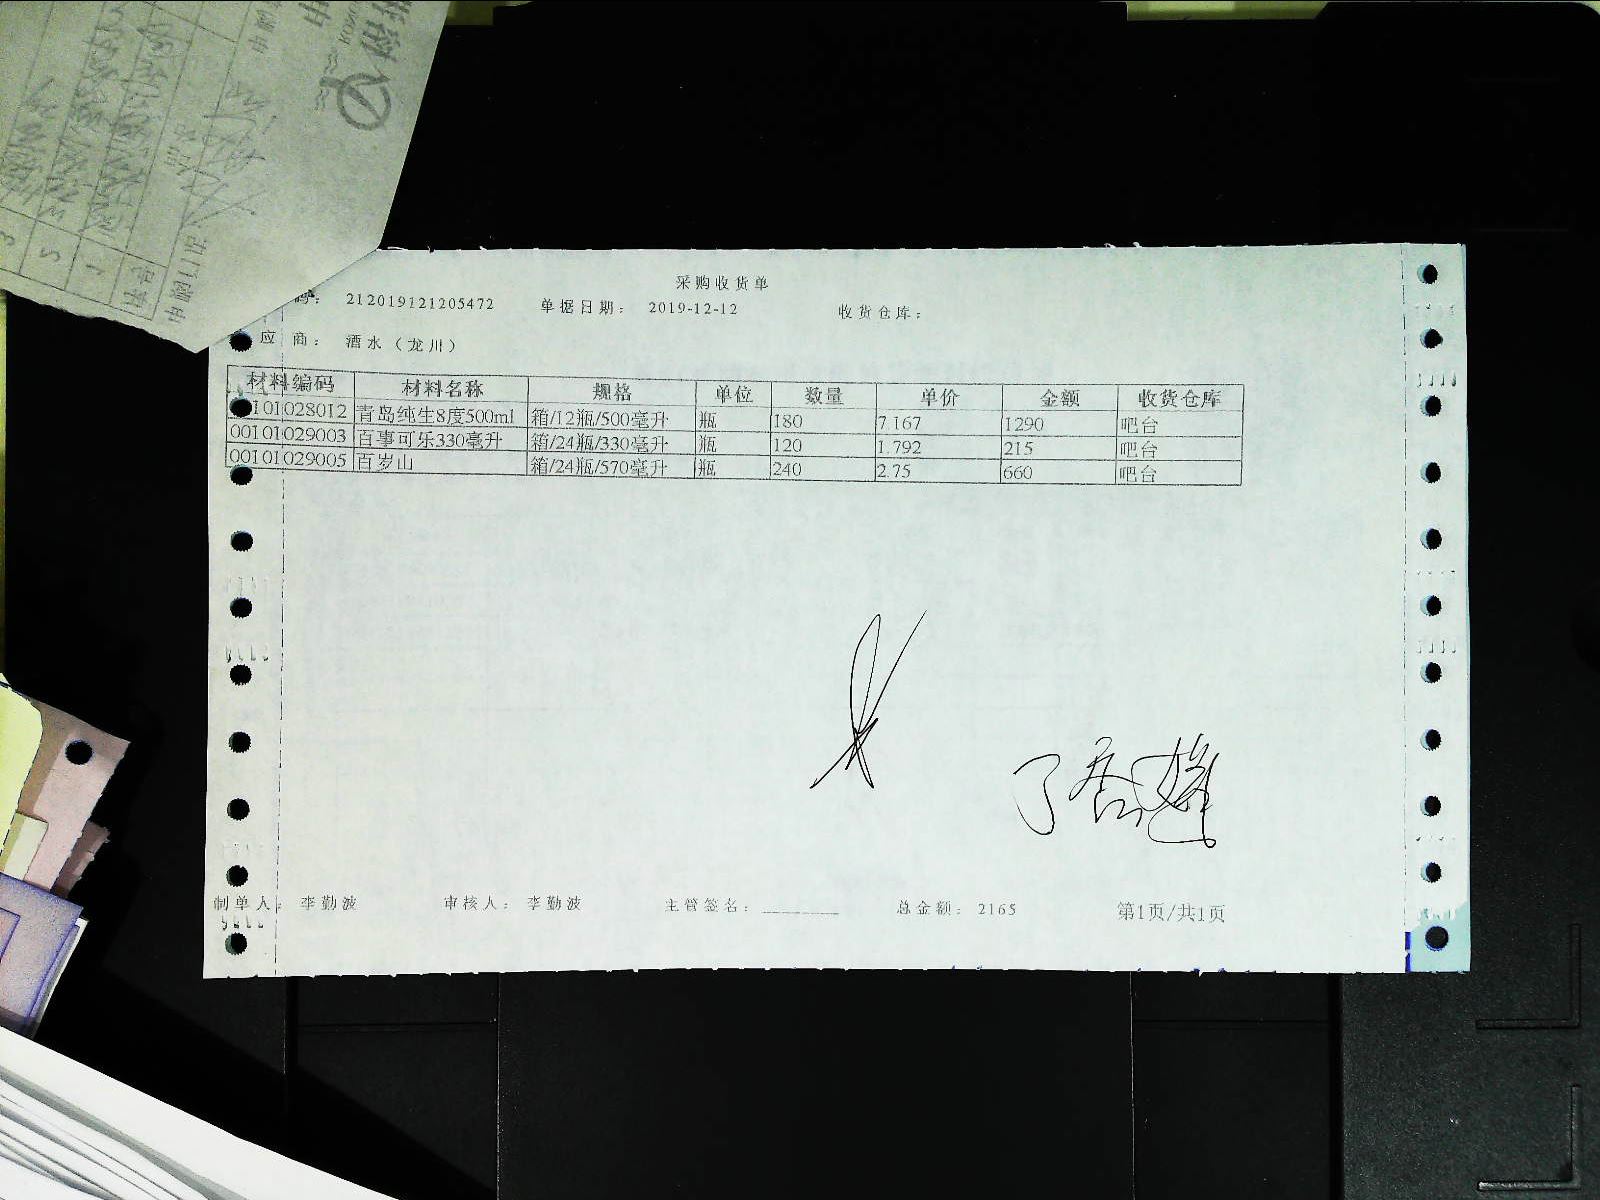 采购收货单
码： 212019121205472 单据日期： 2019-12-12 收货仓库：
应 商： 酒水（龙川）
材料编码 材料名称 规格 单位 数量 单价 金额 收货仓库
101028012 青岛纯生8度500ml 箱/12瓶/500毫升 瓶 180 7.167 1290 吧台
00101029003 百事可乐330毫升 箱/24瓶/330毫升 瓶 120 1.792 215 吧台
00101029005 百岁山 箱/24瓶/570毫升 瓶 240 2.75 660 吧台
制单人： 李勤波 审核人： 李勤波 主管签名： 总金额： 2165 第1页/共1页